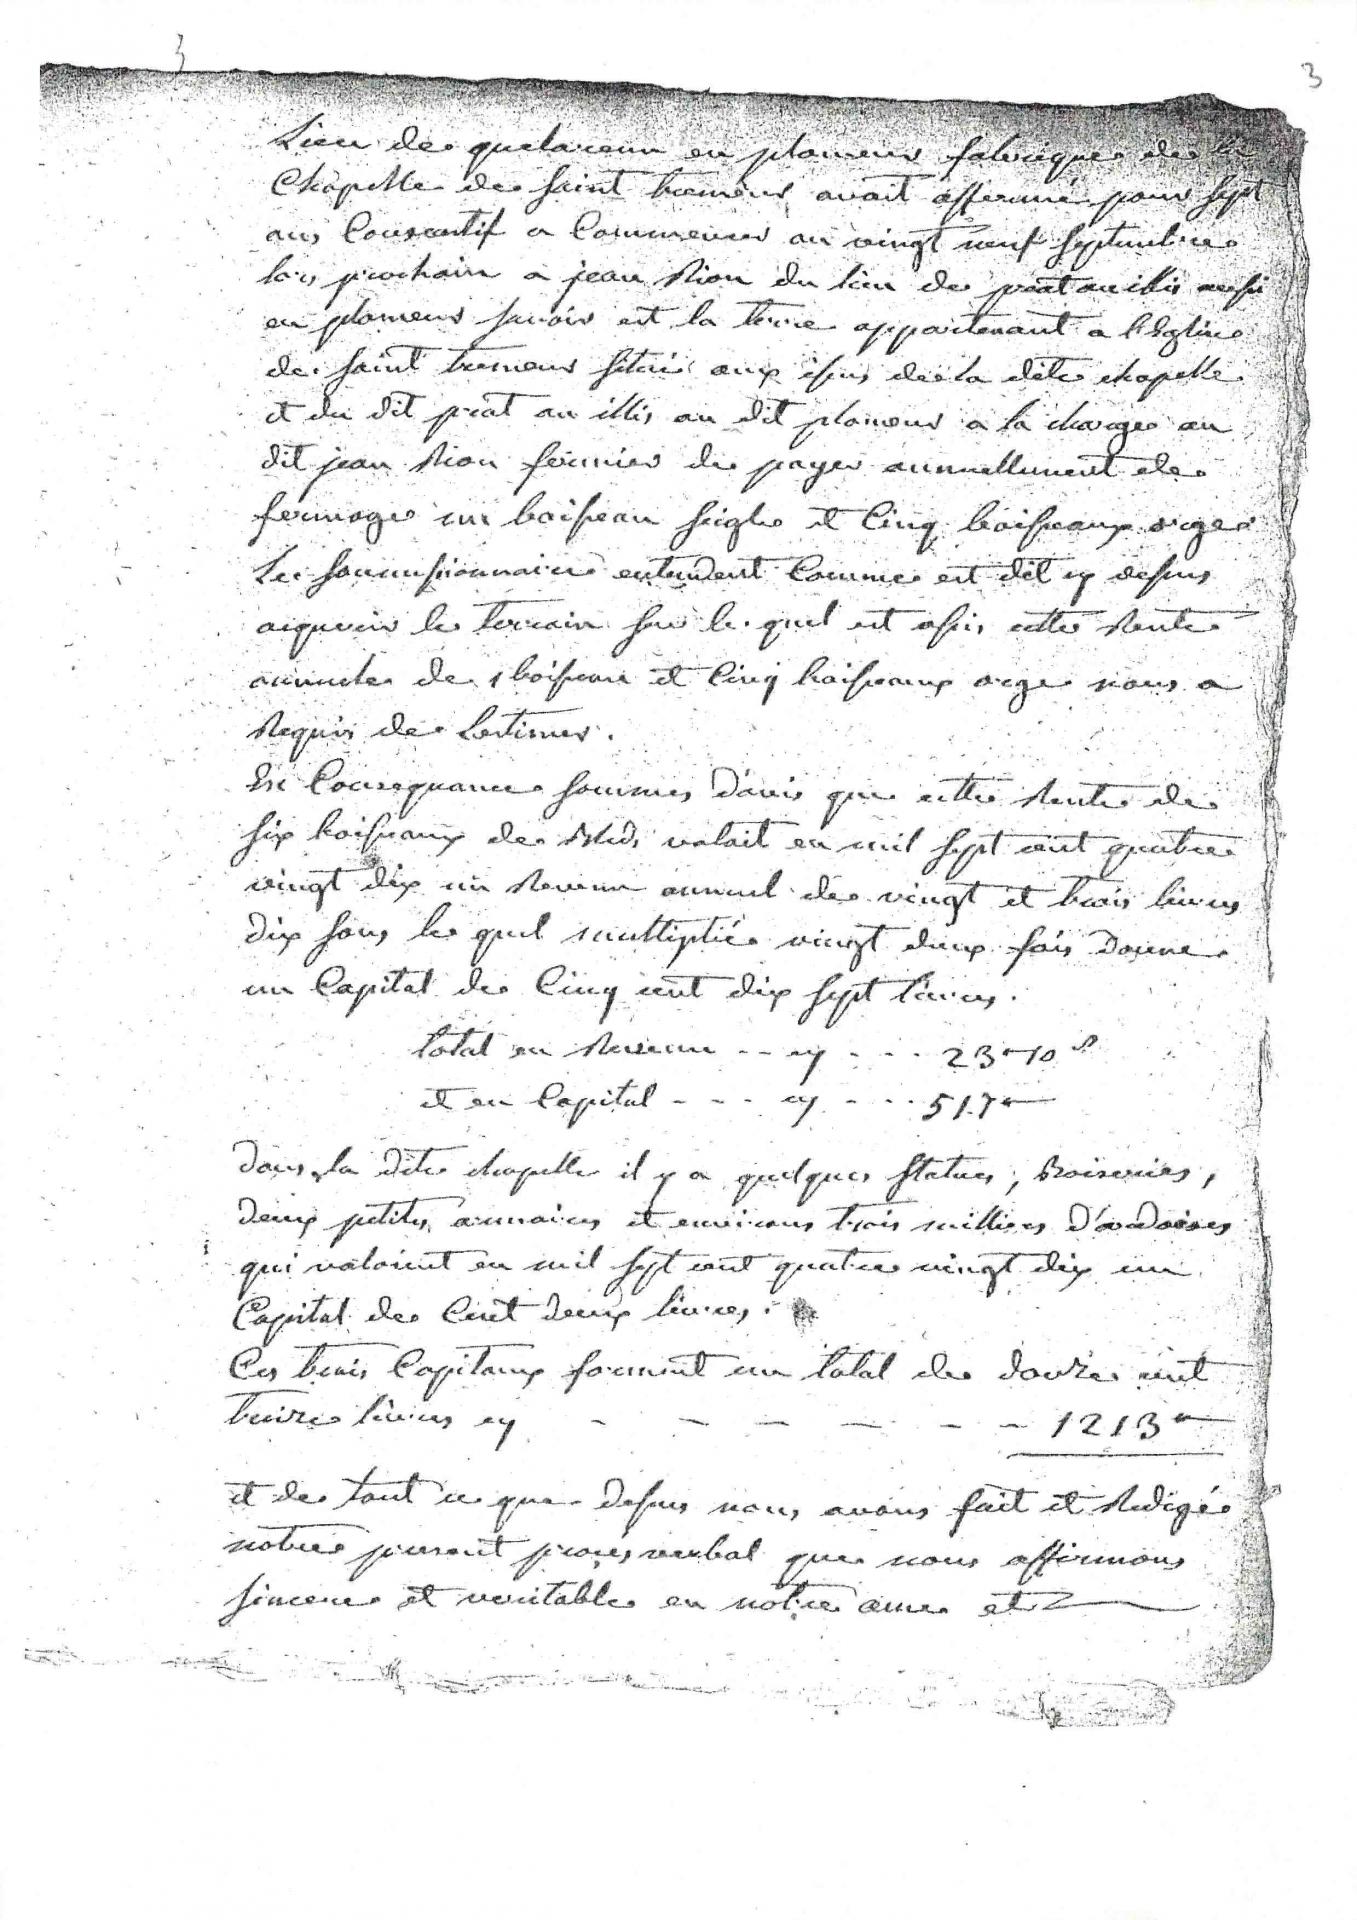 3
3
Lieu de quelarenn en plomeur fabrique de la
Chapelle de saint tremeur avait affermé pour sept
ans Consecutif a Commencer au vingt neuf septembre
lors prochain a jean Rion du lieu de prat an illis aussi
en plomeur savoir est la terre appartenant a l'Eglise
de saint tremeur situé aux issus de la dite chapelle
et du dit prat an illis au dit plomeur a la charge au
dit jean Rion fermier de payer annuellement de
fermage un boisseau seigle et Cinq boisseaux orge
Le soumissionnaire entendent Comme est dit cy dessus
acquerir le terrain sur le quel est assis cette Rente
annuele de 1 boisseau et Cinq boisseaux orge nous a
Requis de Lestimer.
En Consequance sommes d'avis que cette Rente de
six boisseaux de Bled valait en mil sept cent quatre
vingt dix un Revenu annuel de vingt et trois livres
dix sous le quel multiplié vingt deux fois donne
un Capital de Cinq cent dix sept livres.
total en Revenu -- cy --- 23 - 10 s
et en Capital --- cy --- 517
dans la dite chapelle il y a quelques statues, Boiseries,
deux petites armoires et environs trois milliers d'ardoises
qui valoient en mil sept cent quatre vingt dix un
Capital de Cent deux livres.
Ces trois Capitaux forment un total de douze cent
treize livres cy - - - - - - 1213
et de tout ce que dessus nous avons fait et Redigé
notre present procès verbal que nous affirmons
sincere et veritable en notre ame et